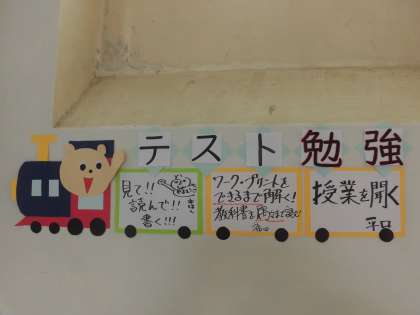 テスト勉強
見て!!
読んで!!
書く!!!
ワーク・プリントを
できるまで解く!
教科書を
授業を聞く
平口